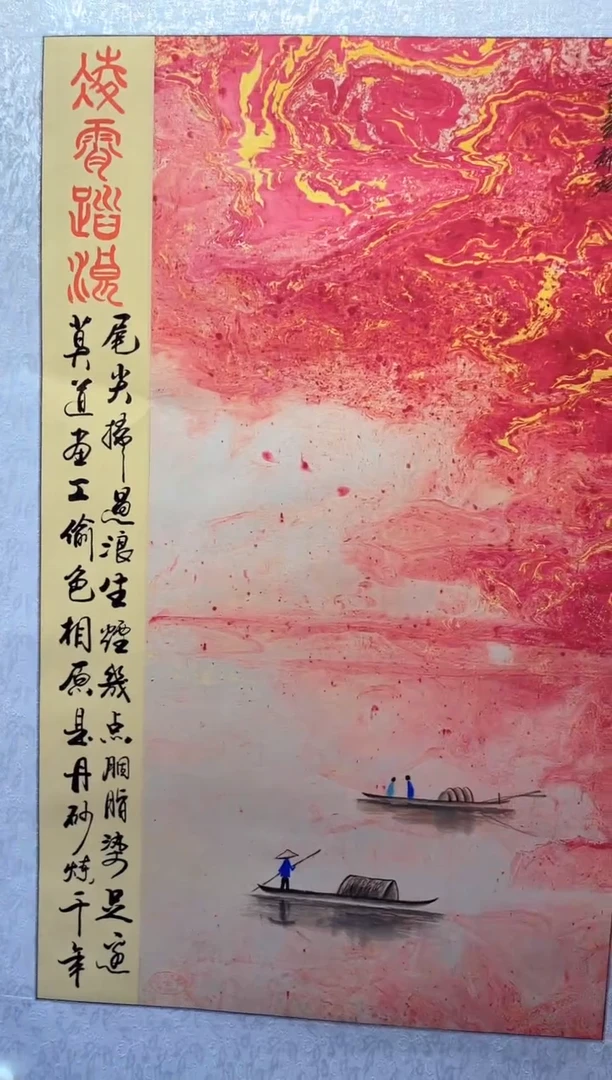 凌霄踏浪
尾尖掃過浪生煙幾点胭脂染足邊
莫道画工偷色相原是丹砂炼千年